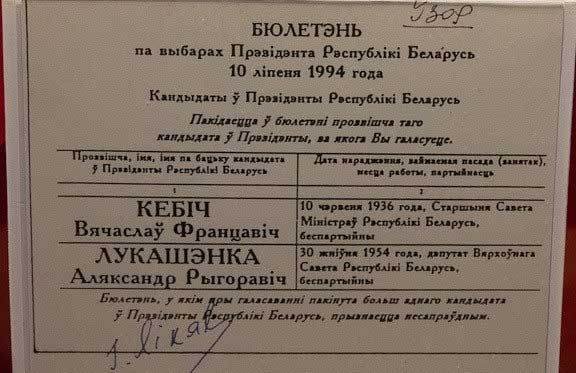 Узор
БЮЛЕТЭНЬ
па выбарах Прэзідэнта Рэспублікі Беларусь
10 ліпеня 1994 года
Кандыдаты ў Прэзідэнты Рэспублікі Беларусь
Пакідаецца ў бюлетэні прозвішча таго
кандыдата ў Прэзідэнты, за якога Вы галасуеце.
Прозвішча, імя, імя па бацьку кандыдата
ў Прэзідэнты Рэспублікі Беларусь
Дата нараджэння, займаемая пасада (занятак),
месца работы, партыйнасць
1
2
КЕБІЧ
Вячаслаў Францавіч
10 чэрвеня 1936 года, Старшыня Савета
Міністраў Рэспублікі Беларусь,
беспартыйны
ЛУКАШЭНКА
Аляксандр Рыгоравіч
30 жніўня 1954 года, дэпутат Вярхоўнага
Савета Рэспублікі Беларусь,
беспартыйны
Бюлетэнь, у якім пры галасаванні пакінута больш аднаго кандыдата
ў Прэзідэнты Рэспублікі Беларусь, прызнаецца несапраўдным.